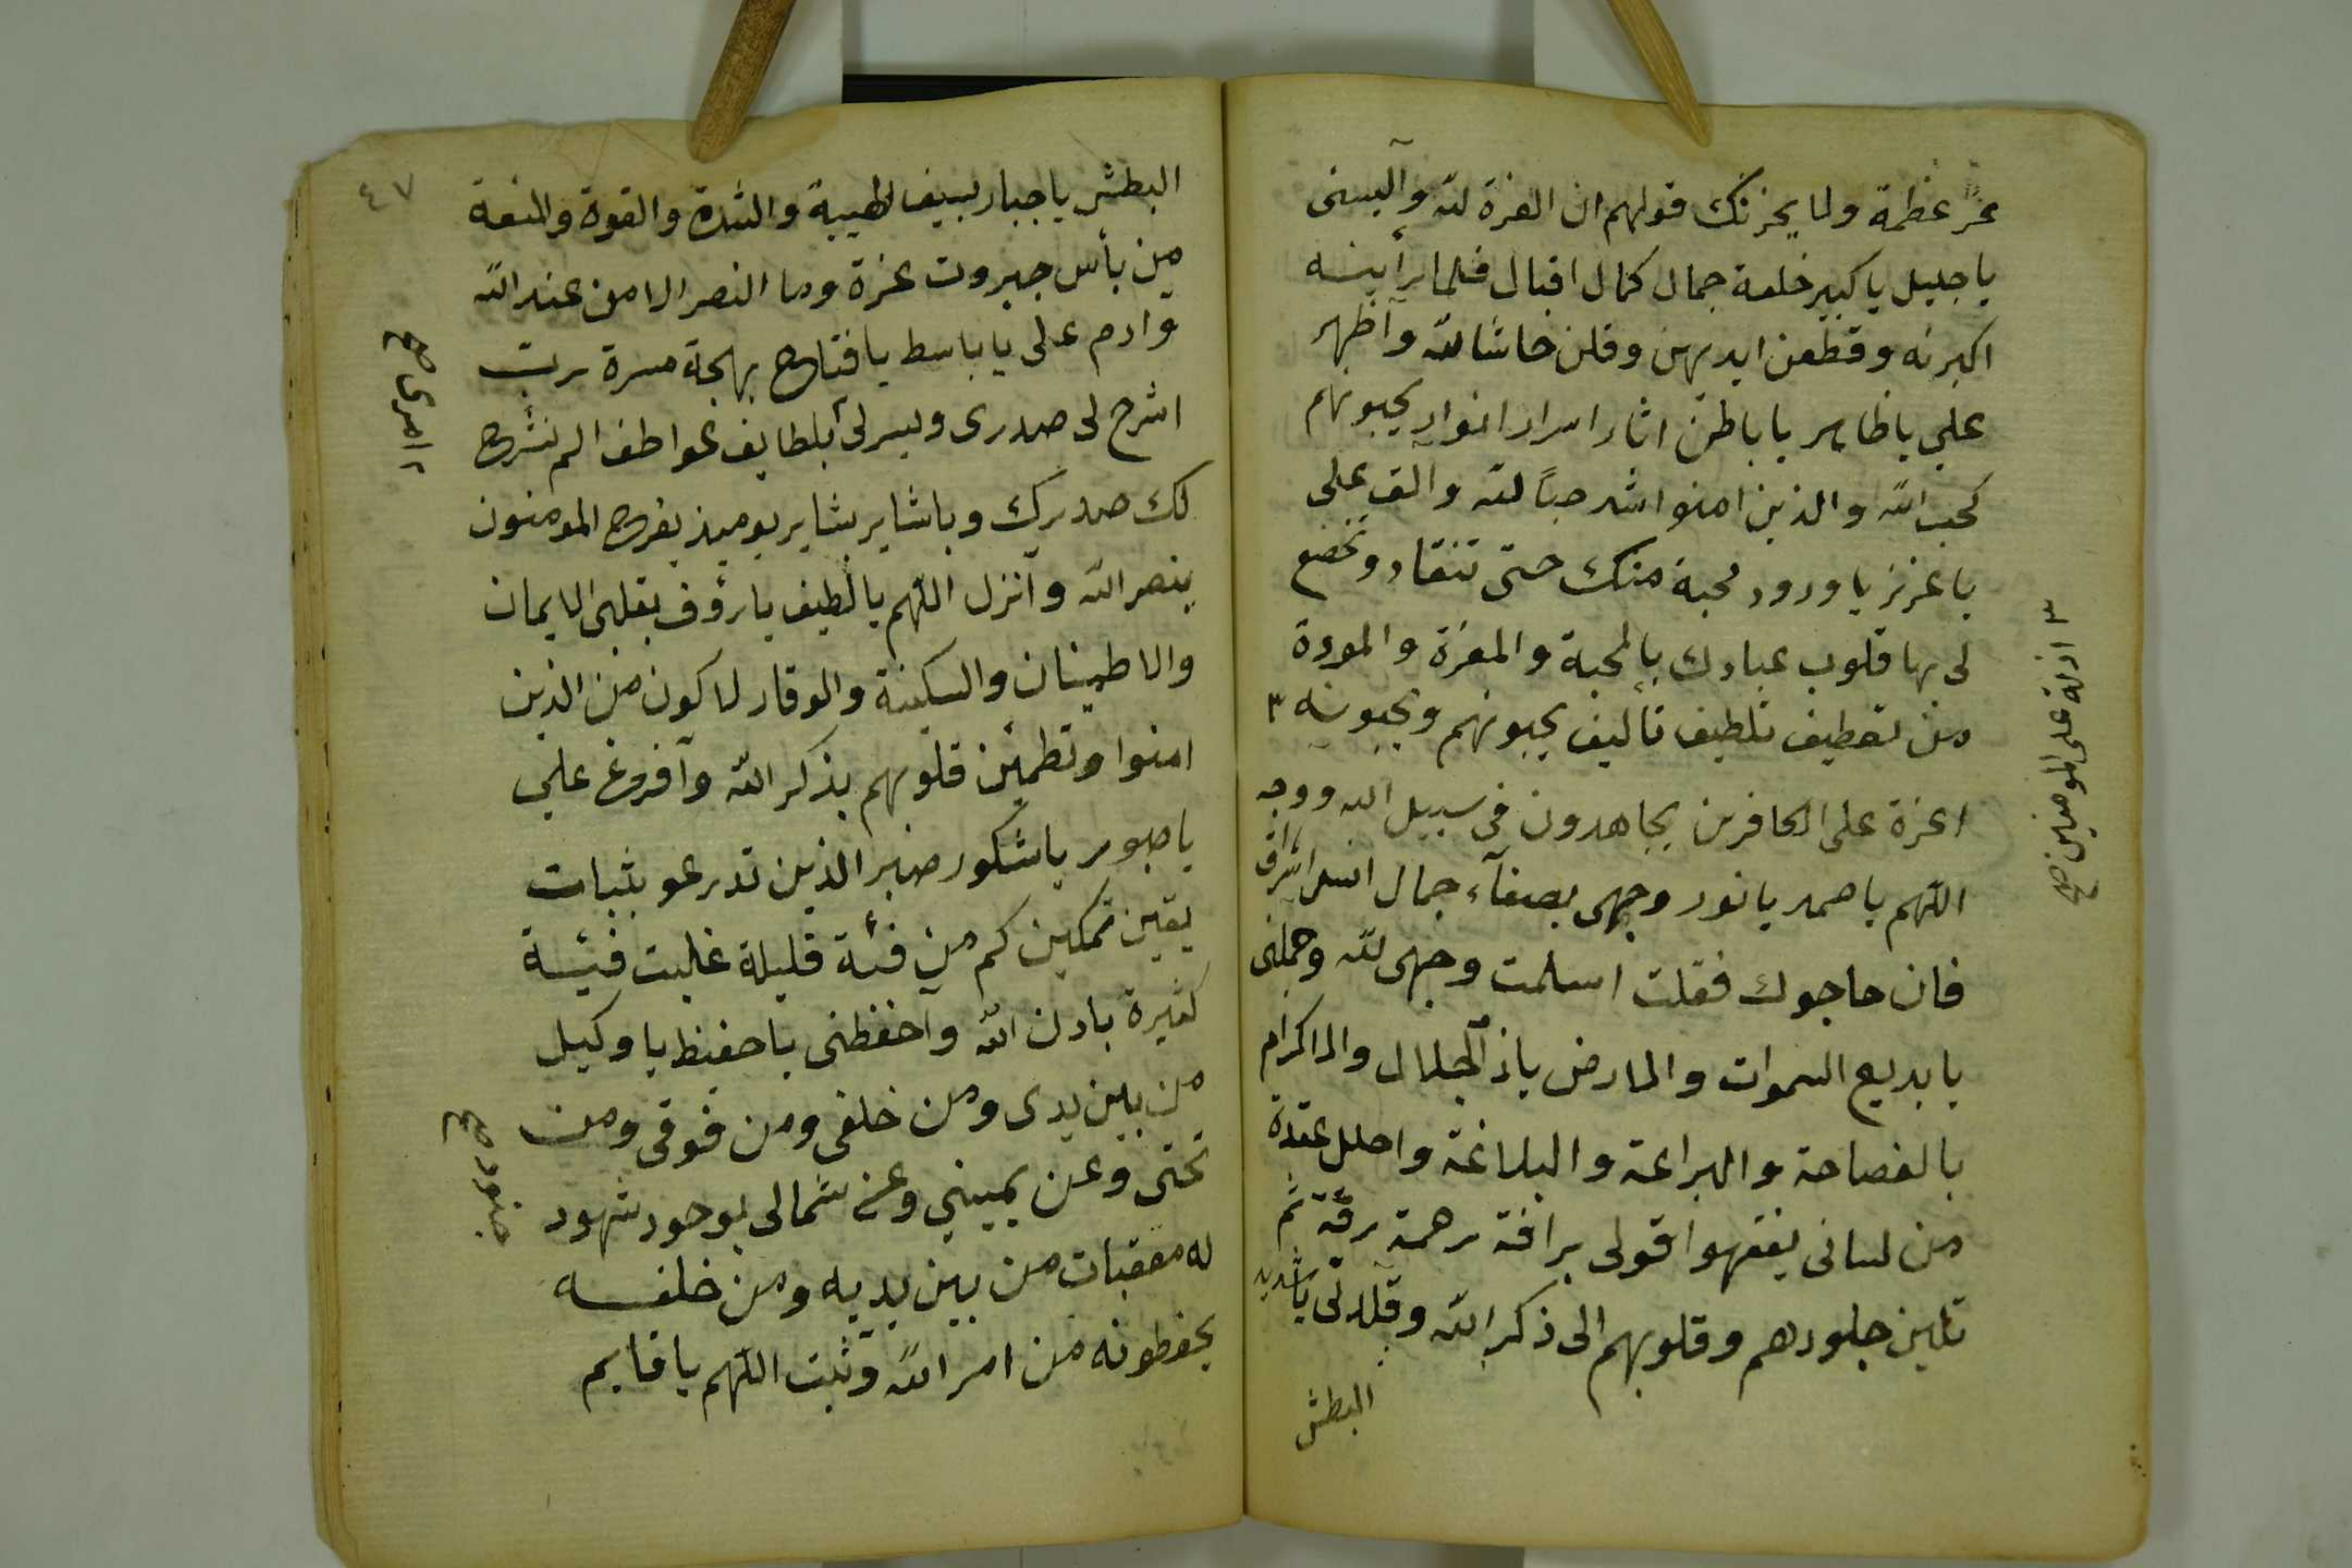 عزًّ عظمة ولا يحزنك قولهم ان العزة لله وآلبسنى
يا جليل يا كبير خلعة جمال كمال اقبال فلما رأينه
اكبرنه وقطعن ايديهن وقلن حاشا لله وآظهر
على يا ظاهر يا باطن اثار اسرار انوار يحبونهم
كحب الله والذين امنوا اشد حباً لله والق على
يا عزيز يا ودود محبة منك حتى تنقاد وتخضع
لى بها قلوب عبادك بالمحبة والمعزة والمودة
من تعطيف تلطيف تأليف يحبونهم ويحبونه ٣
اعزة على الكافرين يجاهدون فى سبيل الله ووجه
اللهم يا صمد يا نور وجهى بصفآء جمال انس اشراق
فان حاجوك فقلت اسلمت وجهى لله وجملنى
يا بديع السموات والارض ياذ الجلال والاكرام
بالفصاحة والبراعة والبلاغة واحلل عقدة
من لسانى يفقهوا قولى برافة رحمة رقة ثم
تلين جلودهم وقلوبهم الى ذكر الله وقلدنى ياشديد
البطش
٣ اذلة على المومنين صح
٤٧
البطش يا جبار بسيف الهيبة والشدة والقوة والمنعة
من بأس جبروت عزة وما النصر الا من عند الله
وادم على يا باسط يا فتاح بهجة مسرة رب
اشرح لى صدرى ويسر لى بلطايف عواطف الم نشرح
لك صدرك وباشاير بشاير يوميذ يفرح المومنون
بنصر الله وآنزل اللهم يا لطيف يا رؤف بقلبى الايمان
والاطمينان والسكينة والوقار لاكون من الذين
امنوا وتطمئن قلوبهم بذكر الله وآفرغ علي
يا صبور يا شكور صبر الذين تدرعو بثبات
يقين تمكين كم من فئة قليلة غلبت فيئة
كثيرة بادن الله وآحفظنى يا حفيظ يا وكيل
من بين يدى ومن خلفى ومن فوقى ومن
تحتى وعن يمينى وعن شمالى بوجود شهود
له معقبات من بين يديه ومن خلفه
يحفظونه من امر الله وثبت اللهم يا قايم
امرى صح
جنود صح